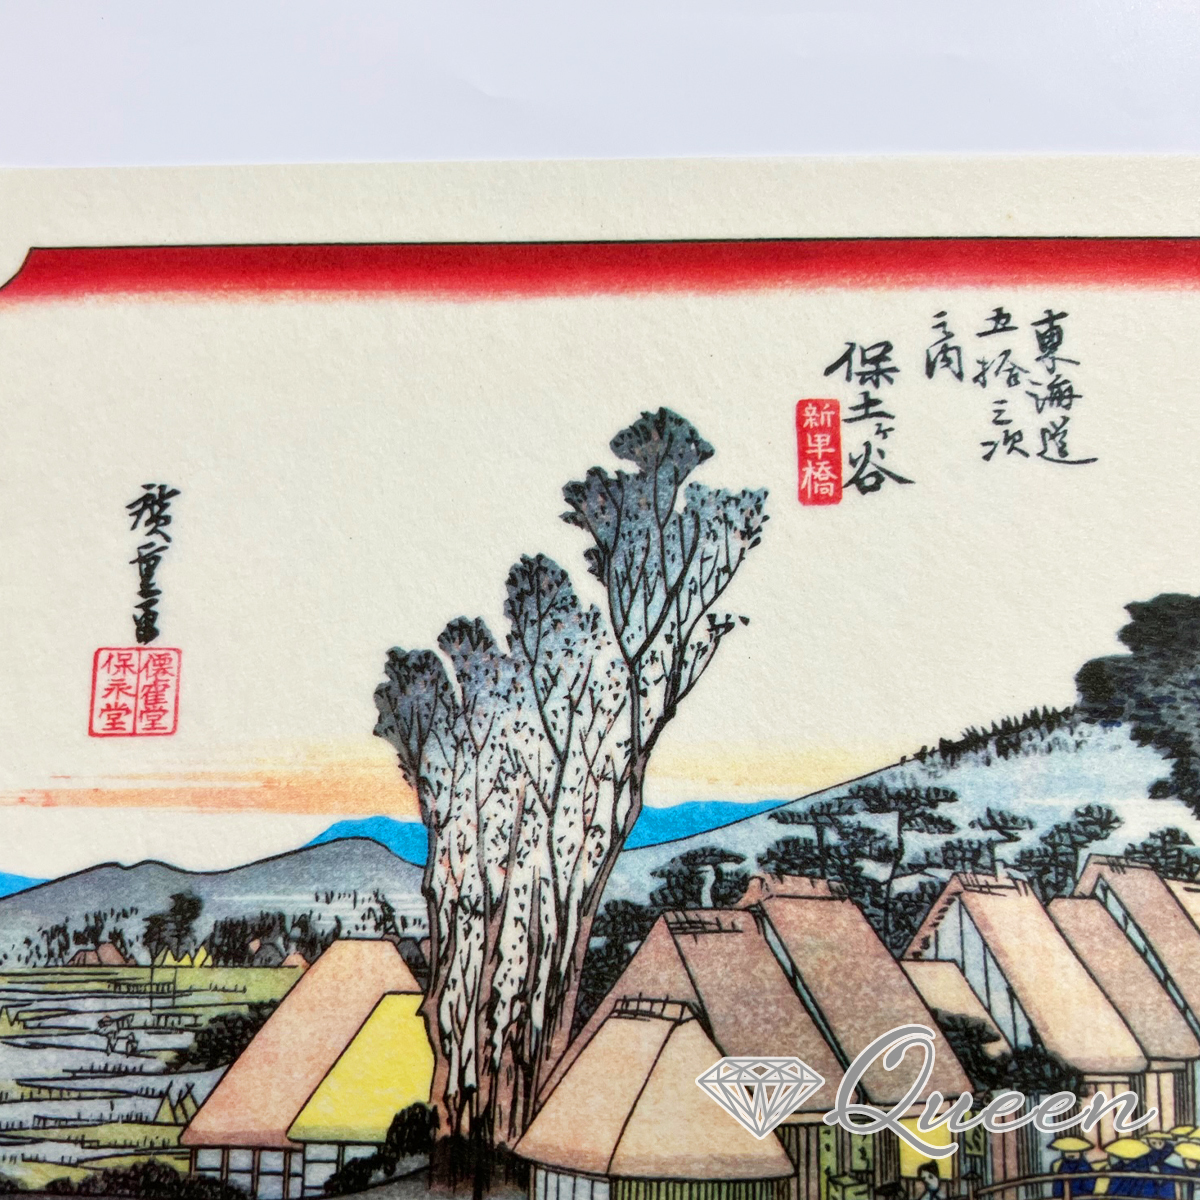 東海道
五拾三次
之内
保土ヶ谷
新甲橋
廣重画
僊鶴堂
保永堂
Queen